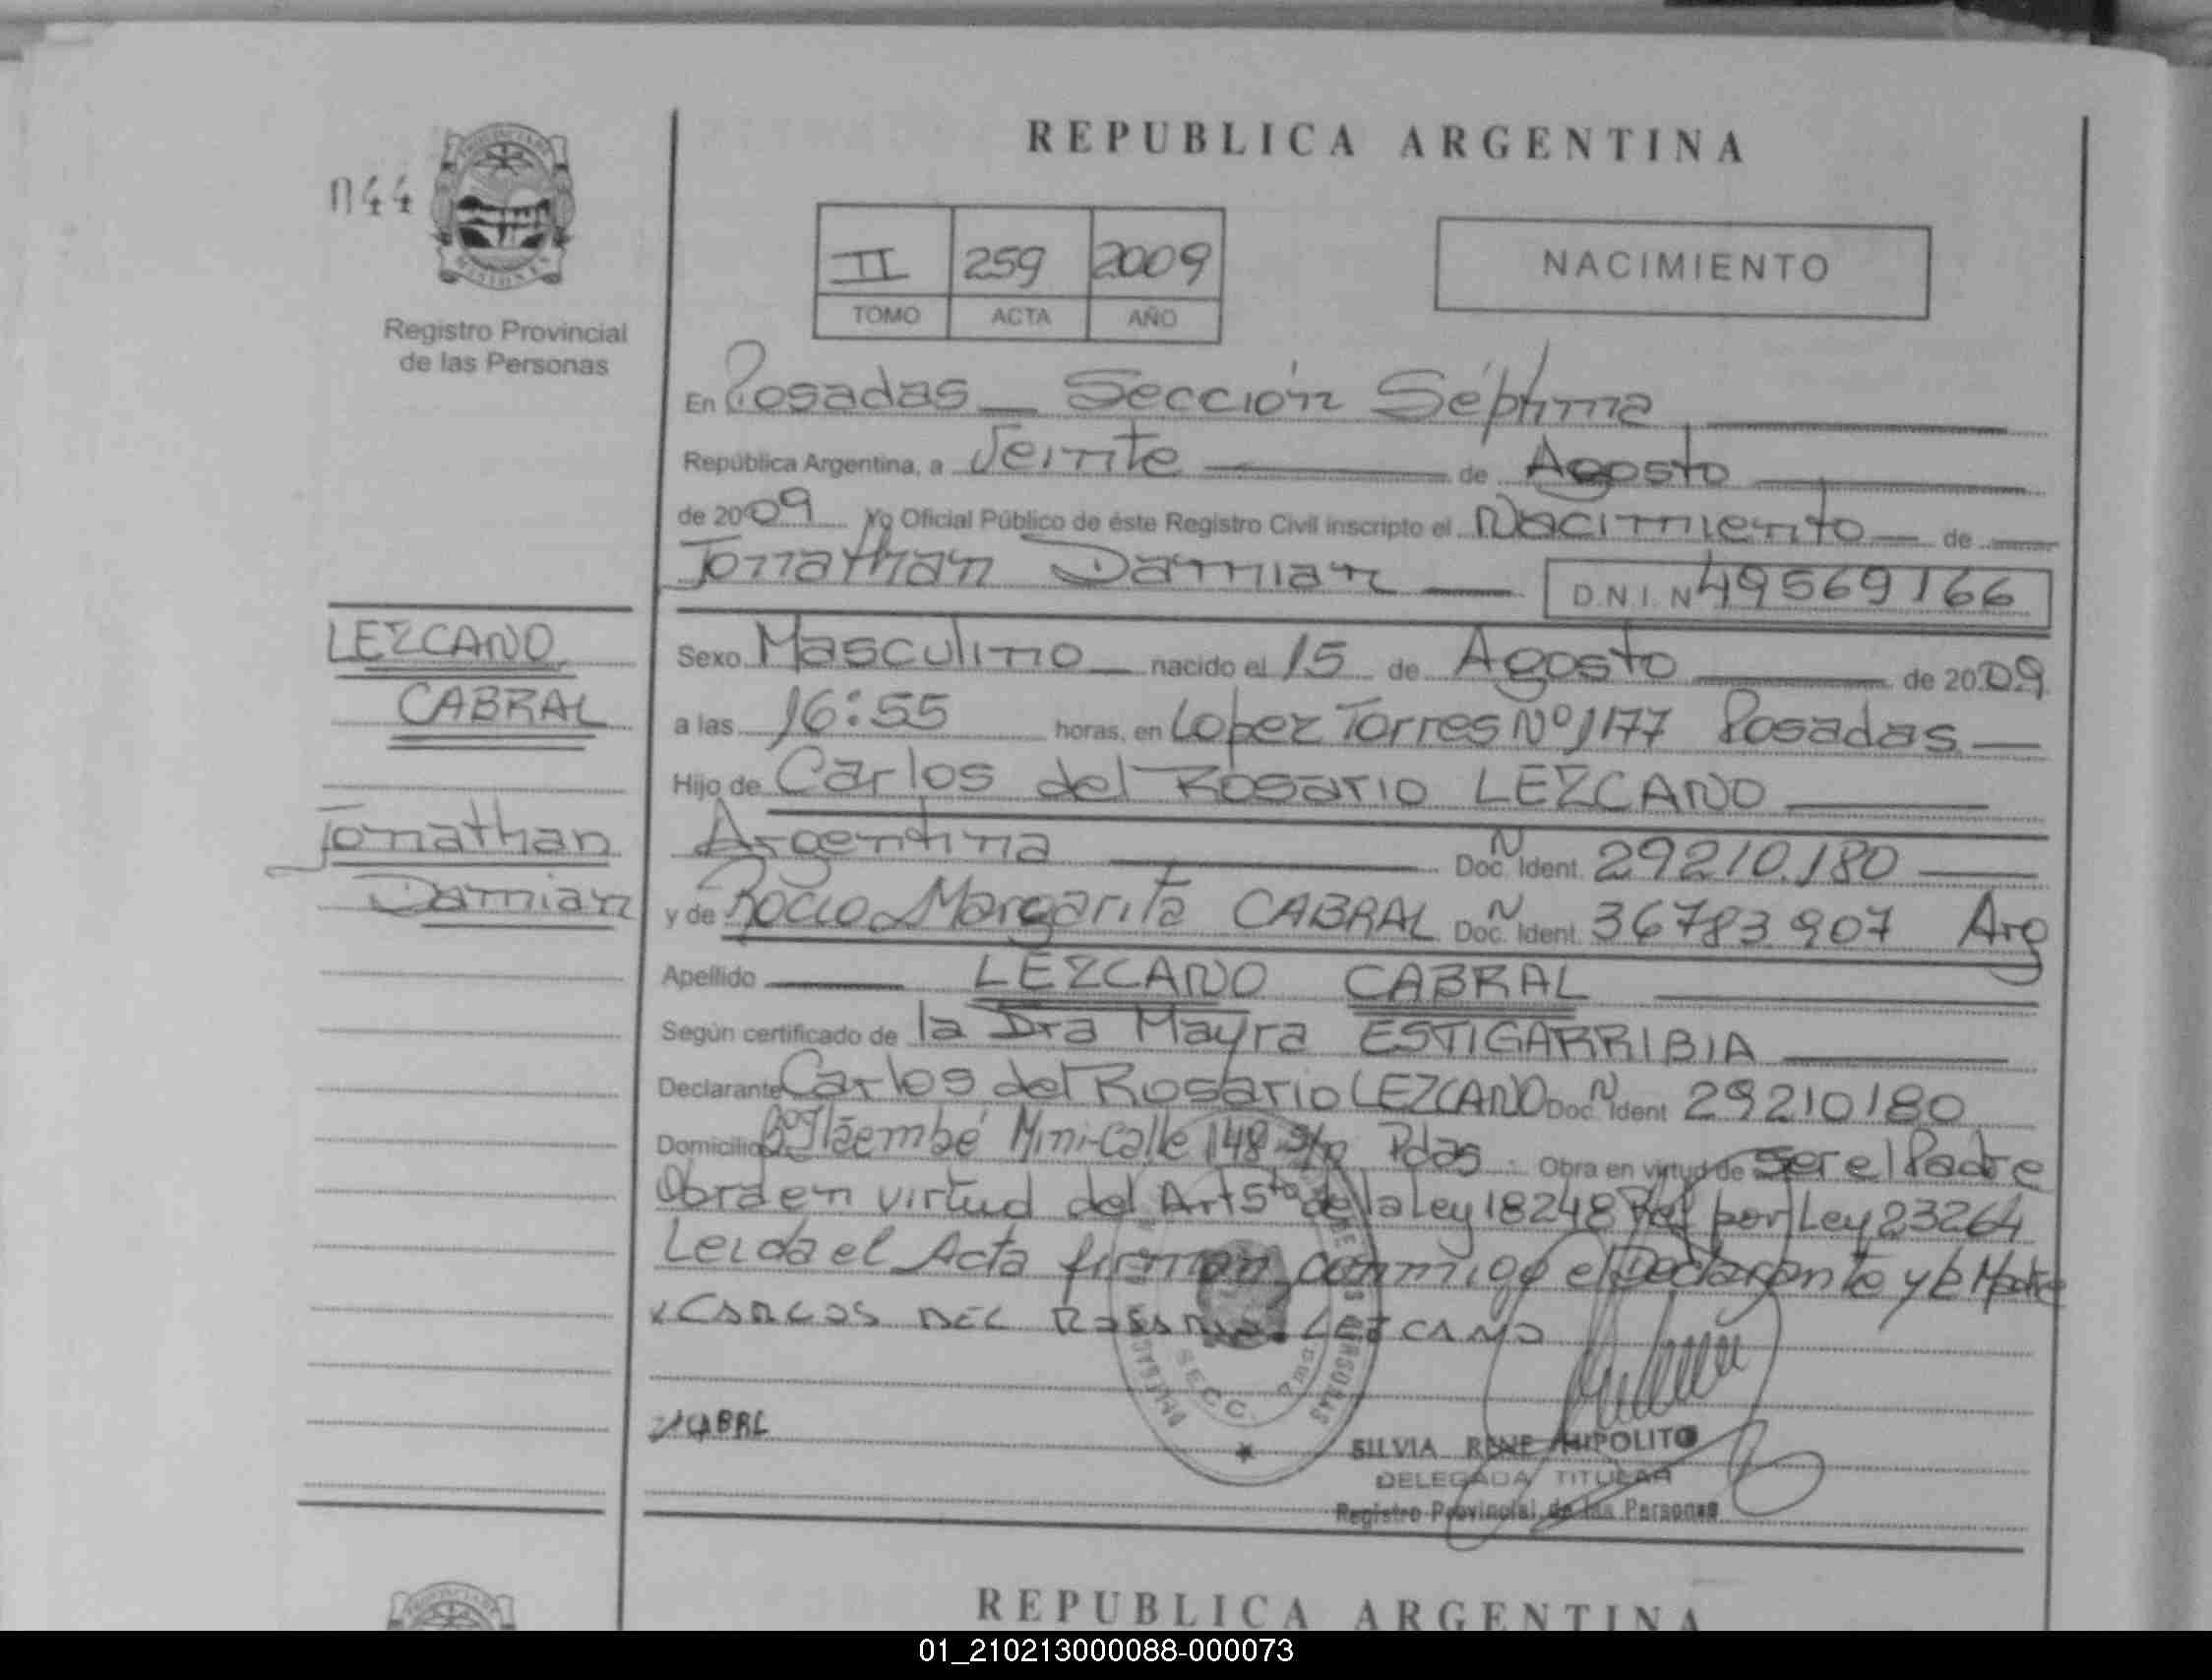 REPUBLICA ARGENTINA
044
PROVINCIA DE
MISIONES
Registro Provincial
de las Personas
II 259 2009
TOMO ACTA AÑO
NACIMIENTO
En Posadas — Sección Séptima
República Argentina, a Veinte de Agosto
de 2009 Yo Oficial Público de éste Registro Civil inscripto el Nacimiento — de
Jonathan Damian — D.N.I. N 49569166
LEZCANO
CABRAL
Jonathan
Damian
Sexo Masculino — nacido el 15 de Agosto de 2009
a las 16:55 horas, en Lopez Torres Nº 1177 Posadas —
Hijo de Carlos del Rosario LEZCANO
Argentina Doc. N Ident. 29210.180
y de Rocio Margarita CABRAL Doc. N Ident. 36783907 Arg
Apellido LEZCANO CABRAL
Según certificado de la Dra Mayra ESTIGARRIBIA
Declarante Carlos del Rosario LEZCANO Doc. N Ident 29210180
Domicilio Bº Itaembé Mini-Calle 148 s/n Pdas. Obra en virtud de Ser el Padre
Obra en virtud del Art 5to de la Ley 18248 Ref por Ley 23264
Leida el Acta firman conmigo el Declarante y la Madre
x CARLOS DEL ROSARIO LEZCANO
CABRL
SECC.
SILVIA RENE HIPOLITO
DELEGADA TITULAR
Registro Provincial de las Personas
REPUBLICA ARGENTINA
01_210213000088-000073